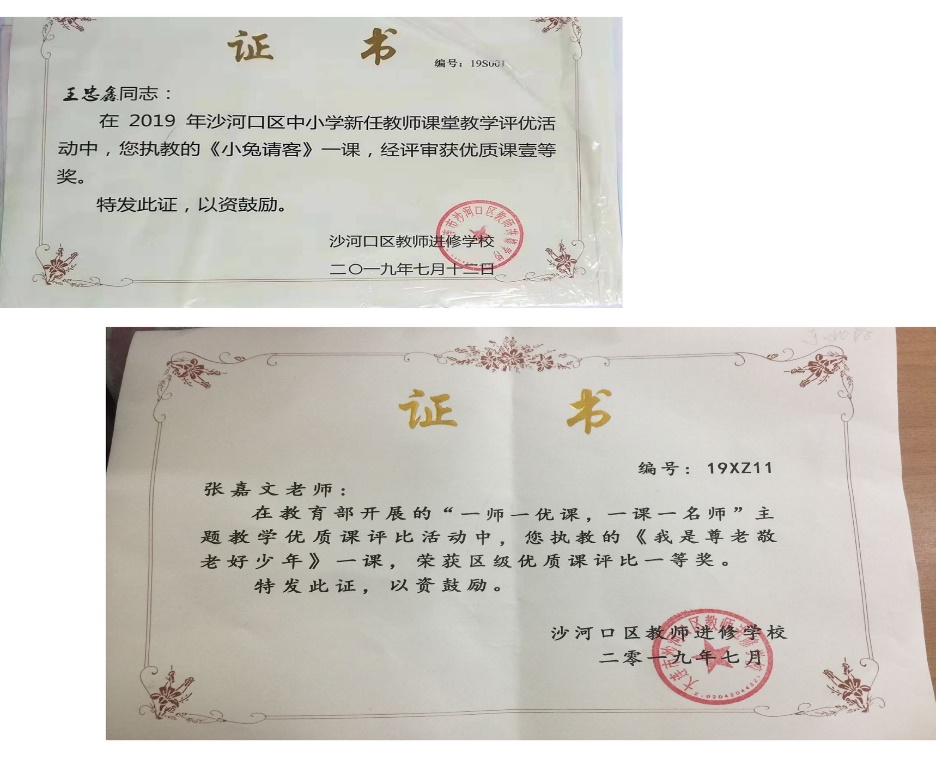 证 书
编号：19S001
王忠鑫同志：
在 2019 年沙河口区中小学新任教师课堂教学评优活
动中，您执教的《小兔请客》一课，经评审获优质课壹等
奖。
特发此证，以资鼓励。
沙河口区教师进修学校
二〇一九年七月十二日
证 书
编号：19XZ11
张嘉文老师：
在教育部开展的“一师一优课，一课一名师”主
题教学优质课评比活动中，您执教的《我是尊老敬
老好少年》一课，荣获区级优质课评比一等奖。
特发此证，以资鼓励。
沙河口区教师进修学校
二零一九年七月
大连市沙河口区教师进修学校